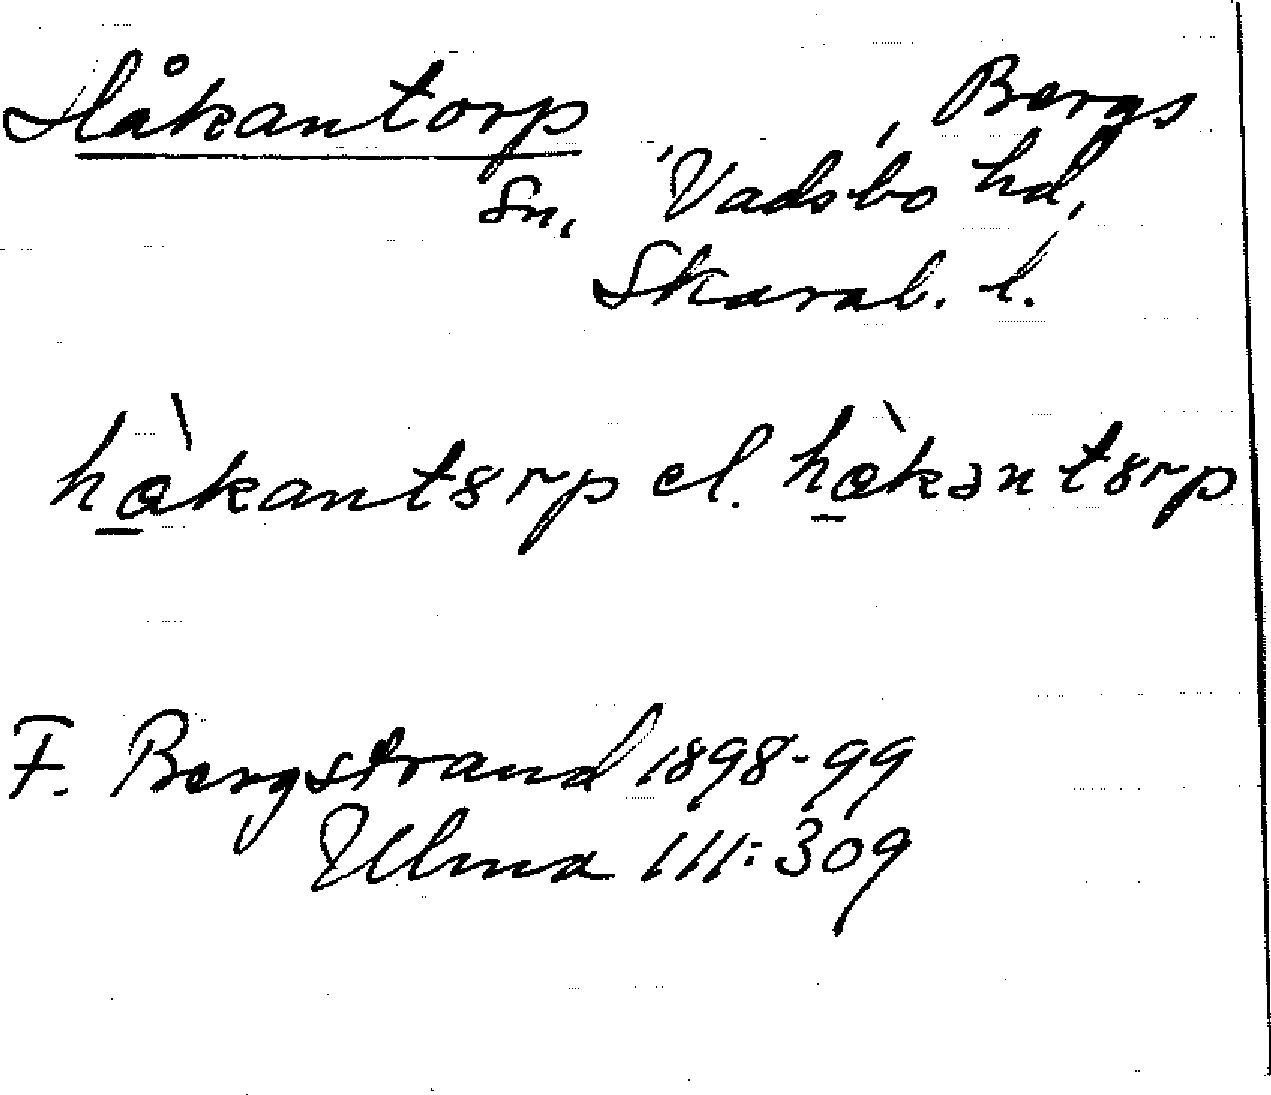 Håkantorp, Bergs
sn, Vadsbo hd,
Skarab. l.
hàkantȣrp el. hàkəntȣrp
F. Bergstrand 1898-99
Ulma 111:309